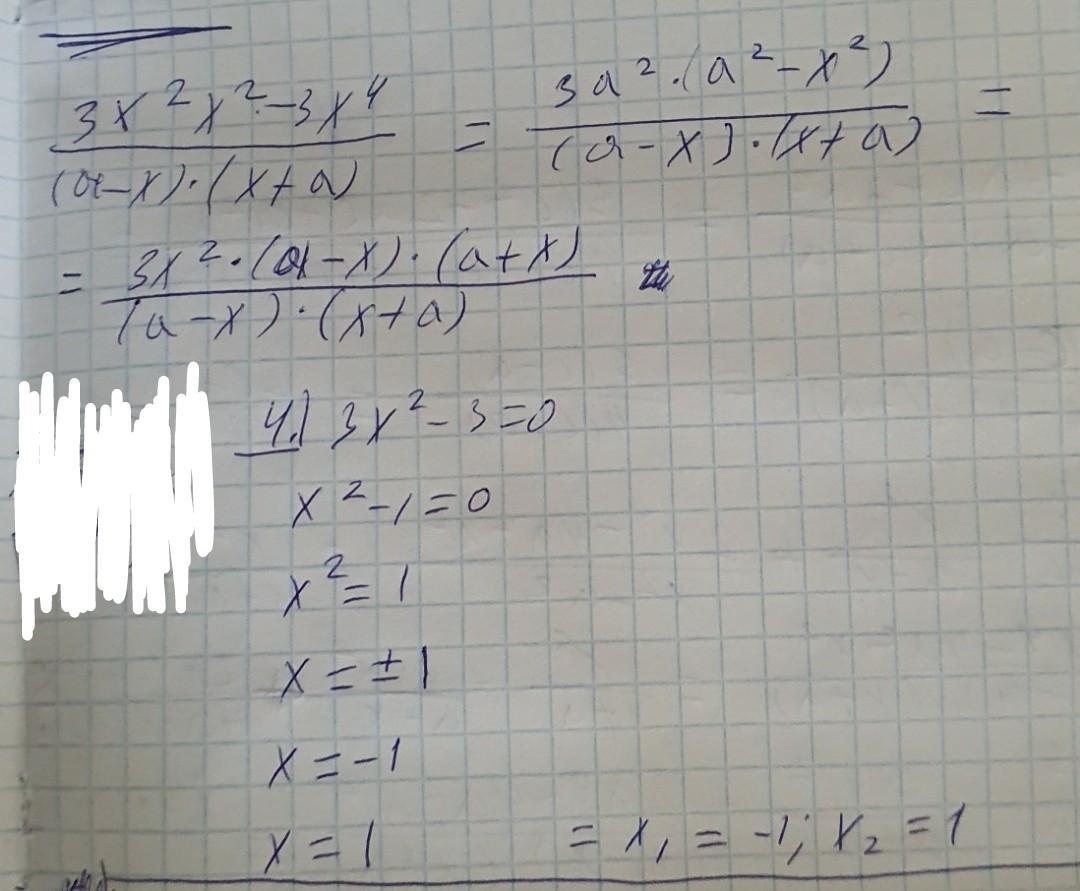 (3x²x² - 3x⁴)/((a-x)·(x+a)) = (3a²·(a²-x²))/((a-x)·(x+a)) =
= (3x²·(a-x)·(a+x))/((a-x)·(x+a))
4.) 3x² - 3 = 0
x² - 1 = 0
x² = 1
x = ± 1
x = -1
x = 1 = x₁ = -1; x₂ = 1